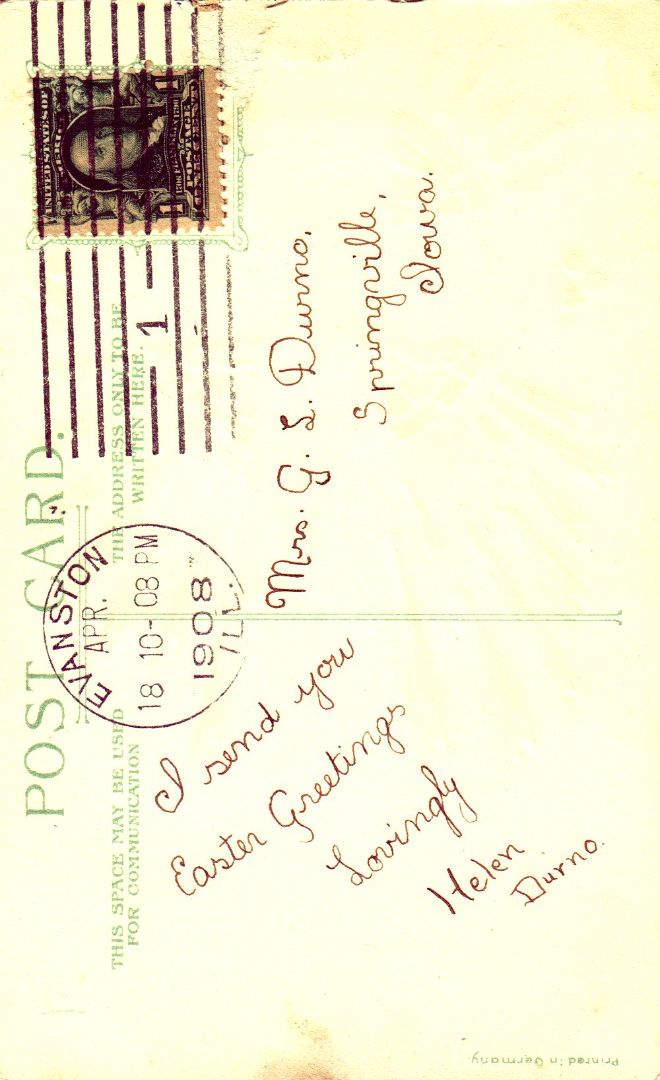 POST CARD.
THIS SPACE MAY BE USED
FOR COMMUNICATION
THE ADDRESS ONLY TO BE
WRITTEN HERE.
UNITED STATES OF
POSTAGE
1
1
1
EVANSTON
APR.
18 10-08 PM
1908
ILL.
I send you
Easter Greetings
Lovingly
Helen
Durno.
Mrs. G. L. Durno,
Springville,
Iowa.
Printed in Germany